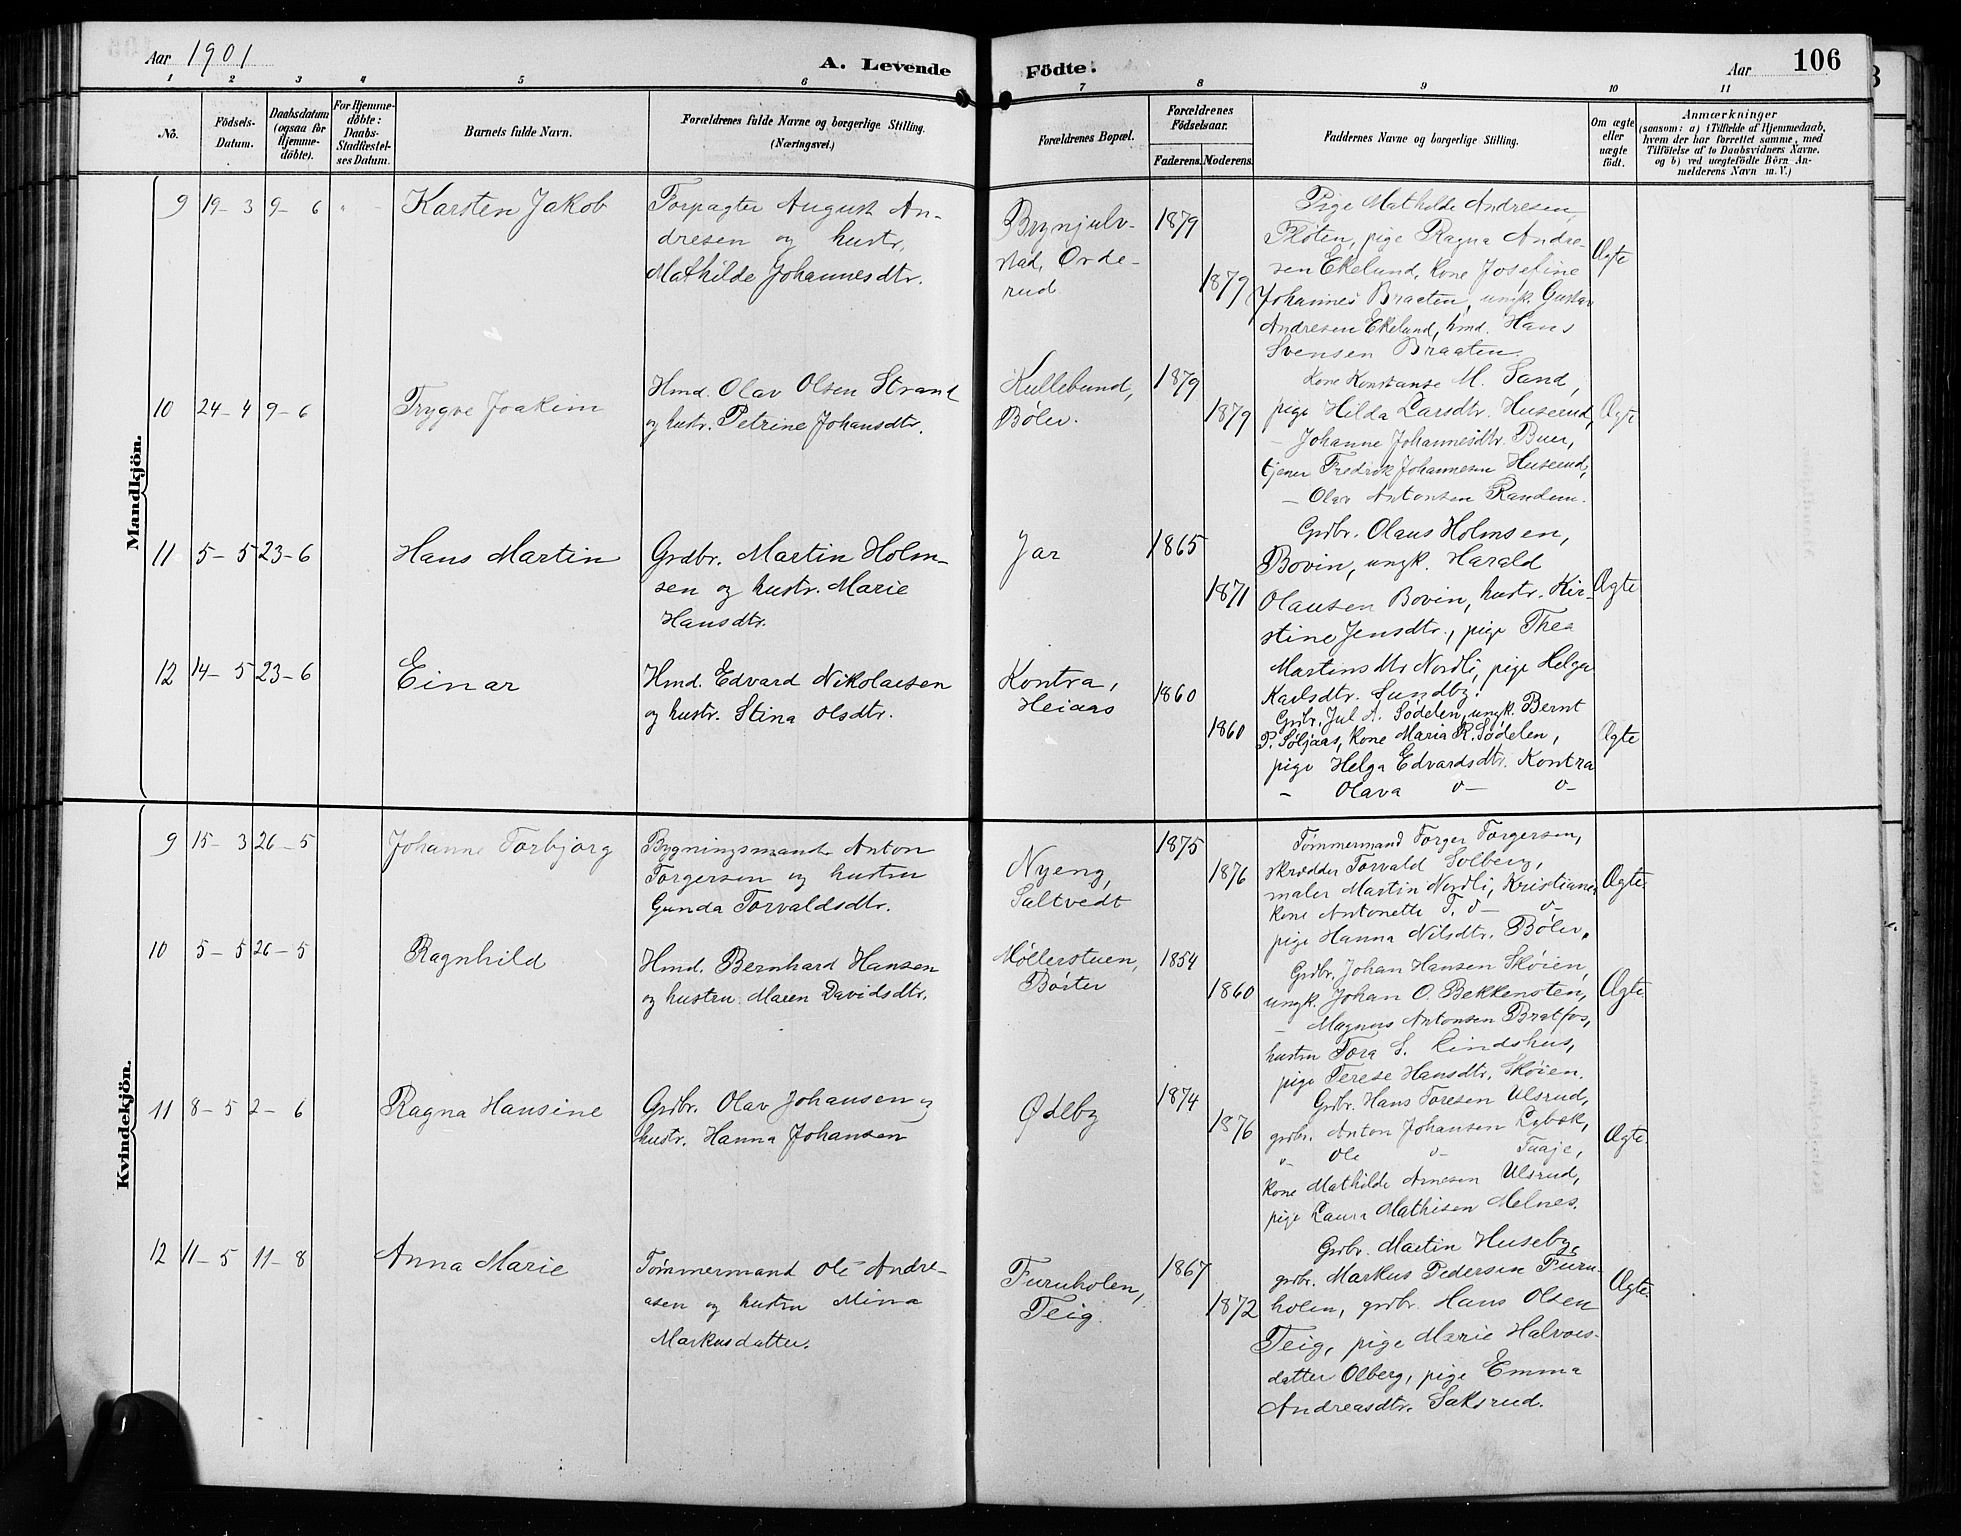 Aar 1901
A. Levende Födte.
Aar
106
1 2 3 4 5 6 7 8 9 10 11
No.
Födsels-Datum.
Daabsdatum (ogsaa for Hjemme-döbte).
For Hjemme-döbte: Daabs-Stadfæstel-ses Datum.
Barnets fulde Navn.
Forældrenes fulde Navne og borgerlige Stilling.
(Næringsvei.)
Forældrenes Bopæl.
Forældrenes Födselsaar.
Faderens. Moderens.
Faddernes Navne og borgerlige Stilling.
Om ægte eller uægte födt.
Anmærkninger
(saasom: a) i Tilfælde af Hjemmedaab,
hvem der har forrettet samme, med
Tilföielse af to Daabsvidners Navne.
og b) ved uægtefödte Börn An-
melderens Navn m. V.)
Mandkjön.
9 19-3 9-6 Karsten Jakob
Forpagter August An-
dresen og hustr.
Mathilde Johannesdtr.
Brynjulv-
stad, Orde-
rud
1879
1879
Pige Mathilde Andresen,
Fløten, pige Ragna Andre-
sen Ekelund, kone Josefine
Johannes Braaten, ungk. Gustav
Andresen Ekelund, hmd. Hans
Svensen Braaten.
Ægte
10 24-4 9-6 Trygve Joakim
Hmd. Olav Olsen Strand
og hustr. Petrine Johansdtr.
Kullebund,
Bøler.
1879
1879
Kone Konstanse M. Sand,
pige Hilda Larsdtr. Huserud,
- Johanne Johannesdtr. Buer,
tjener Fredrik Johannesen Huserud,
- Olav Antonsen Randem.
Ægte
11 5-5 23-6 Hans Martin
Grdbr. Martin Holm-
sen og hustr. Marie
Hansdtr.
Jar
1865
1871
Grdbr. Olaus Holmsen,
Bovin, ungk. Harald
Olausen Bovin, hustr. Kir-
stine Jensdtr., pige Thea
Martinsdtr Nordli, pige Helga
Karlsdtr. Sundby.
Ægte
12 14-5 23-6 Einar
Hmd. Edvard Nikolaisen
og hustr. Stina Olsdtr.
Kontra,
Heiaas
1860
1860
Grdbr. Jul A. Sødelen, ungk. Bernt
P. Søljaas, kone Maria R. Sødelen,
pige Helga Edvardsdtr. Kontra
- Olava o- o-
Ægte
Kvindekjön.
9 15-3 26-5 Johanne Torbjørg
Bygningsmand Anton
Torgersen og hustru
Gunda Torvaldsdtr.
Nyeng,
Saltvedt
1875
1876
Tømmermand Torger Torgersen,
skrædder Torvald Solberg,
maler Martin Nordli, Kristiania
kone Antonette T. o- o-
pige Hanna Nilsdtr. Bøler.
Ægte
10 5-5 26-5 Ragnhild
Hmd. Bernhard Hansen
og hustru Maren Davidsdtr.
Møllerstuen,
Børter
1854
1860
Grdbr. Johan Hansen Skøien,
ungk. Johan O. Bekkensten,
- Magnus Antonsen Bratfos,
hustru Tora S. Lindshus,
pige Terese Hansdtr. Skøien.
Ægte
11 8-5 2-6 Ragna Hansine
Grdbr. Olav Johansen og
hustr. Hanna Johansen
Ødeby
1874
1876
Grdbr. Hans Toresen Ulsrud,
grdbr. Anton Johansen Rybæk,
o- Ole o- Taaje,
kone Mathilde Arnesen Ulsrud,
pige Laura Mathisen Melnes.
Ægte
12 11-5 11-8 Anna Marie
Tømmermand Ole Andre-
asen og hustru Mina
Markusdatter.
Furuholen,
Teig.
1867
1872
Grdbr. Martin Huseby,
grdbr. Markus Pedersen Furu-
holen, grdbr. Hans Olsen
Teig, pige Marie Halvors-
datter Olberg, pige Emma
Andreasdtr. Saksrud.
Ægte